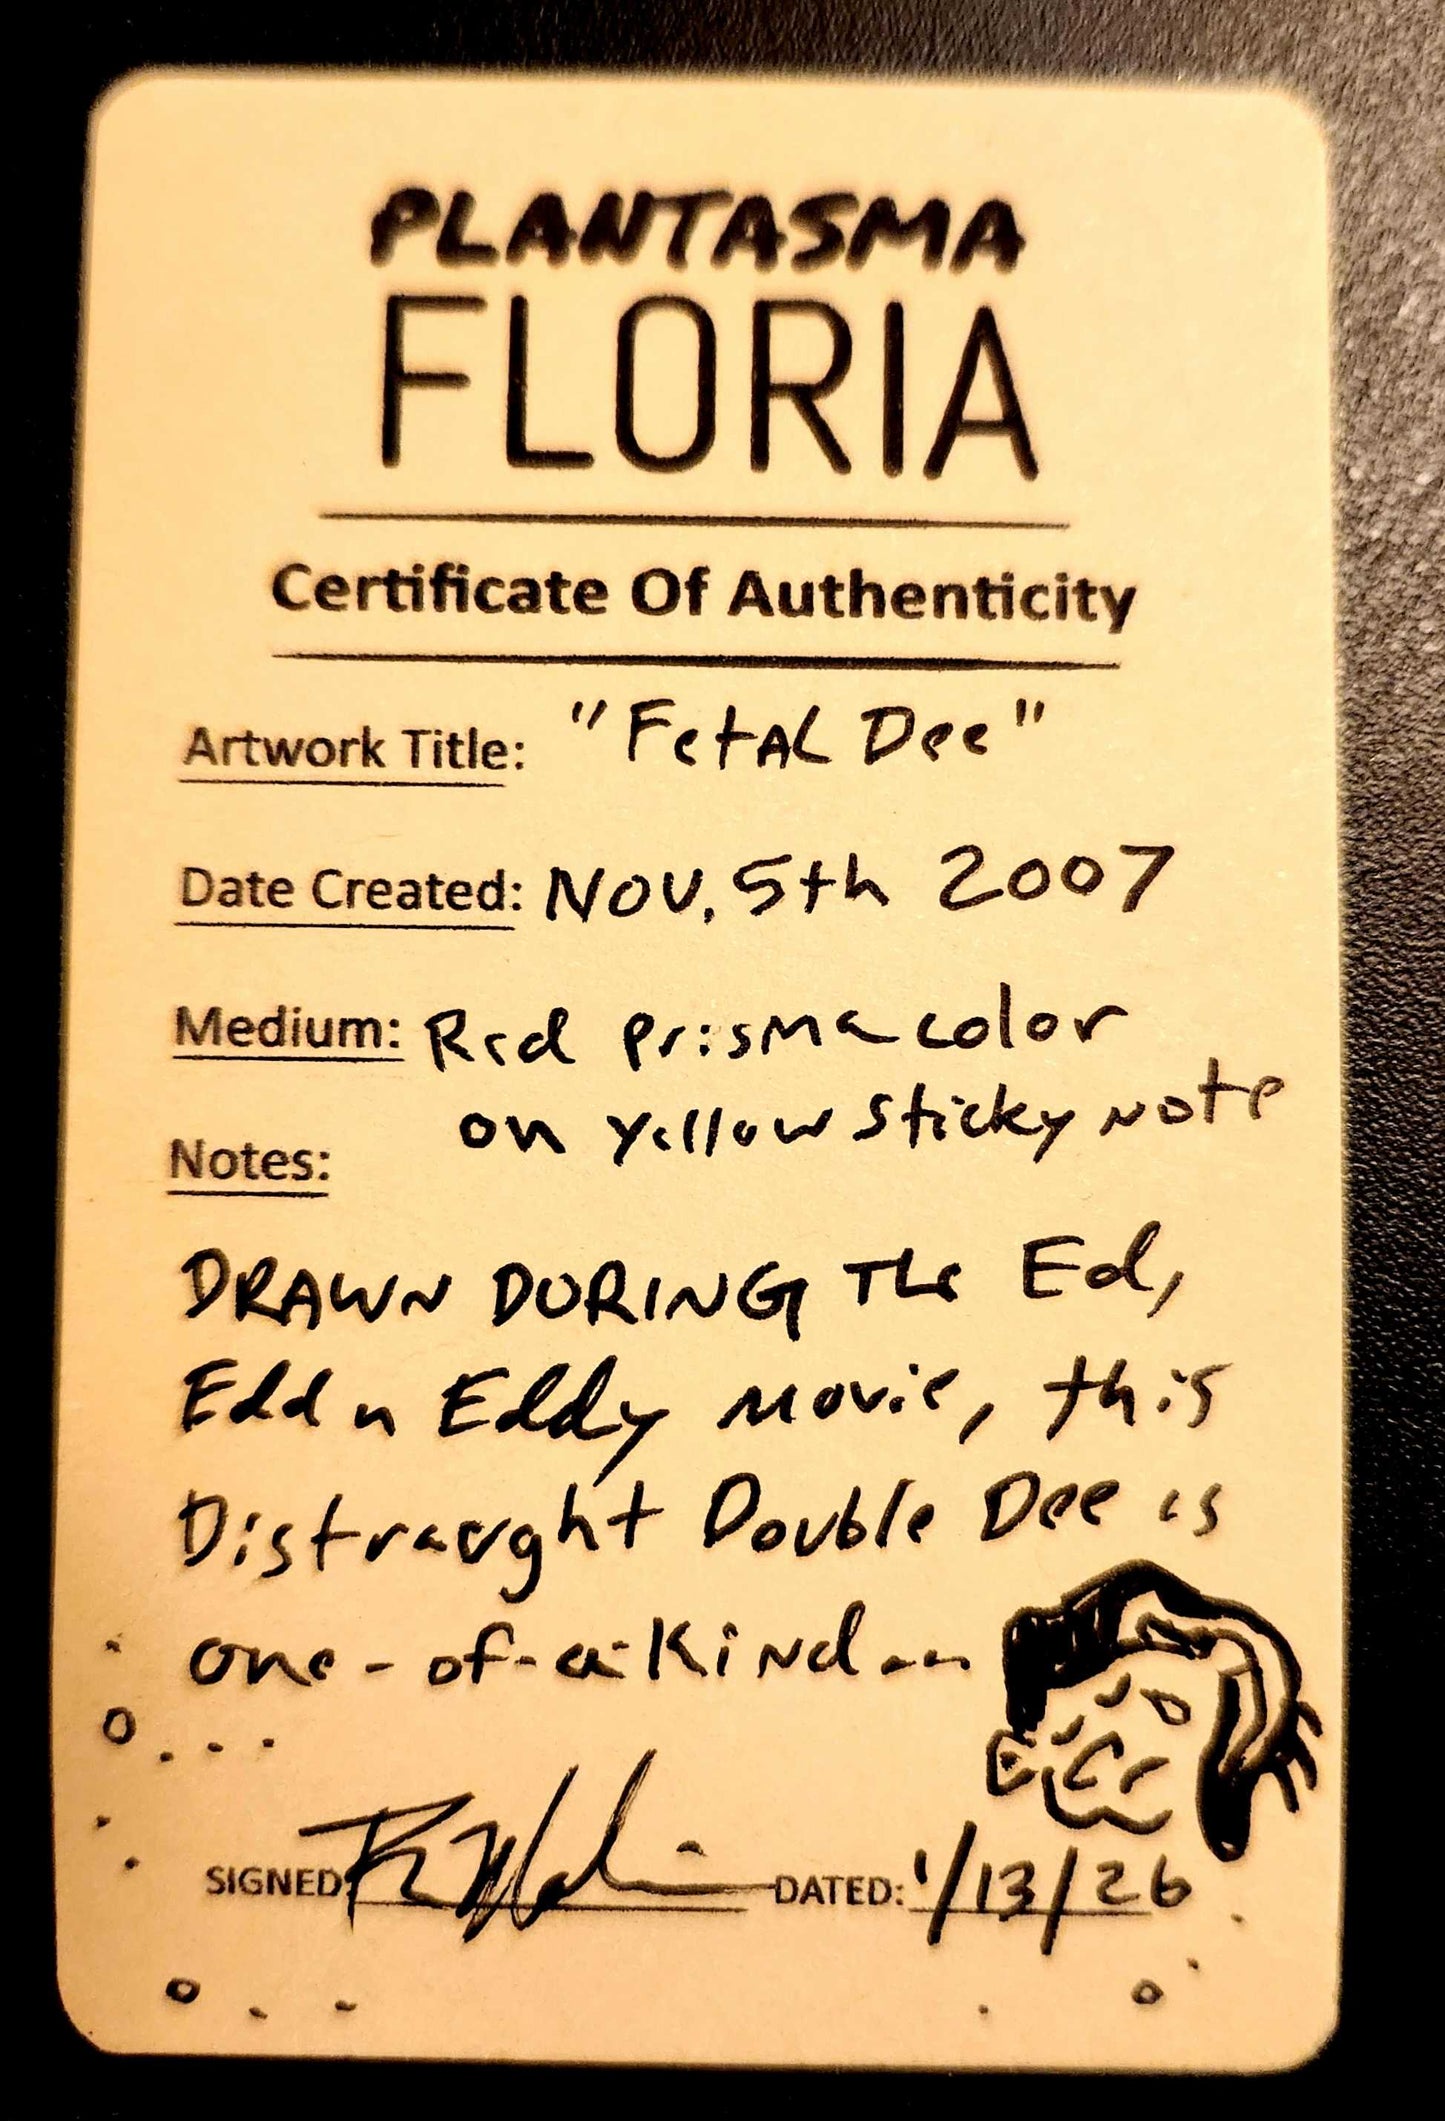 PLANTASMA
FLORIA
Certificate Of Authenticity
Artwork Title: "Fetal Dee"
Date Created: Nov. 5th 2007
Medium: Red prismacolor
on yellow sticky note
Notes:
DRAWN DURING The Ed,
Edd n Eddy movie, this
Distraught Double Dee is
one-of-a-kind...
SIGNED: DATED: 1/13/26